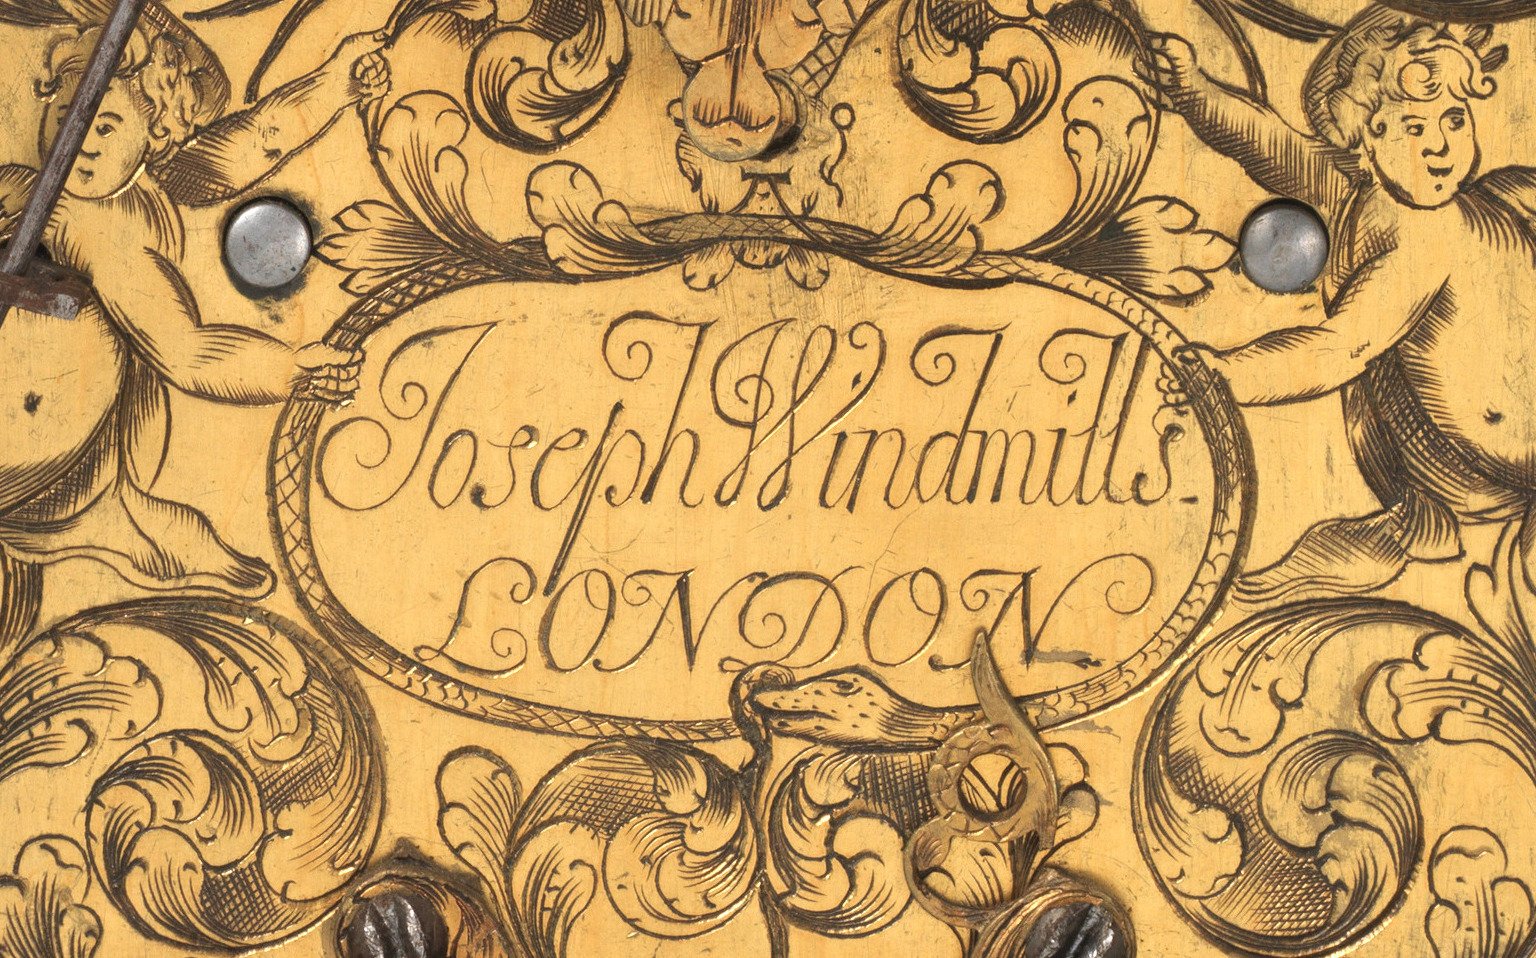 Joseph Windmills
LONDON